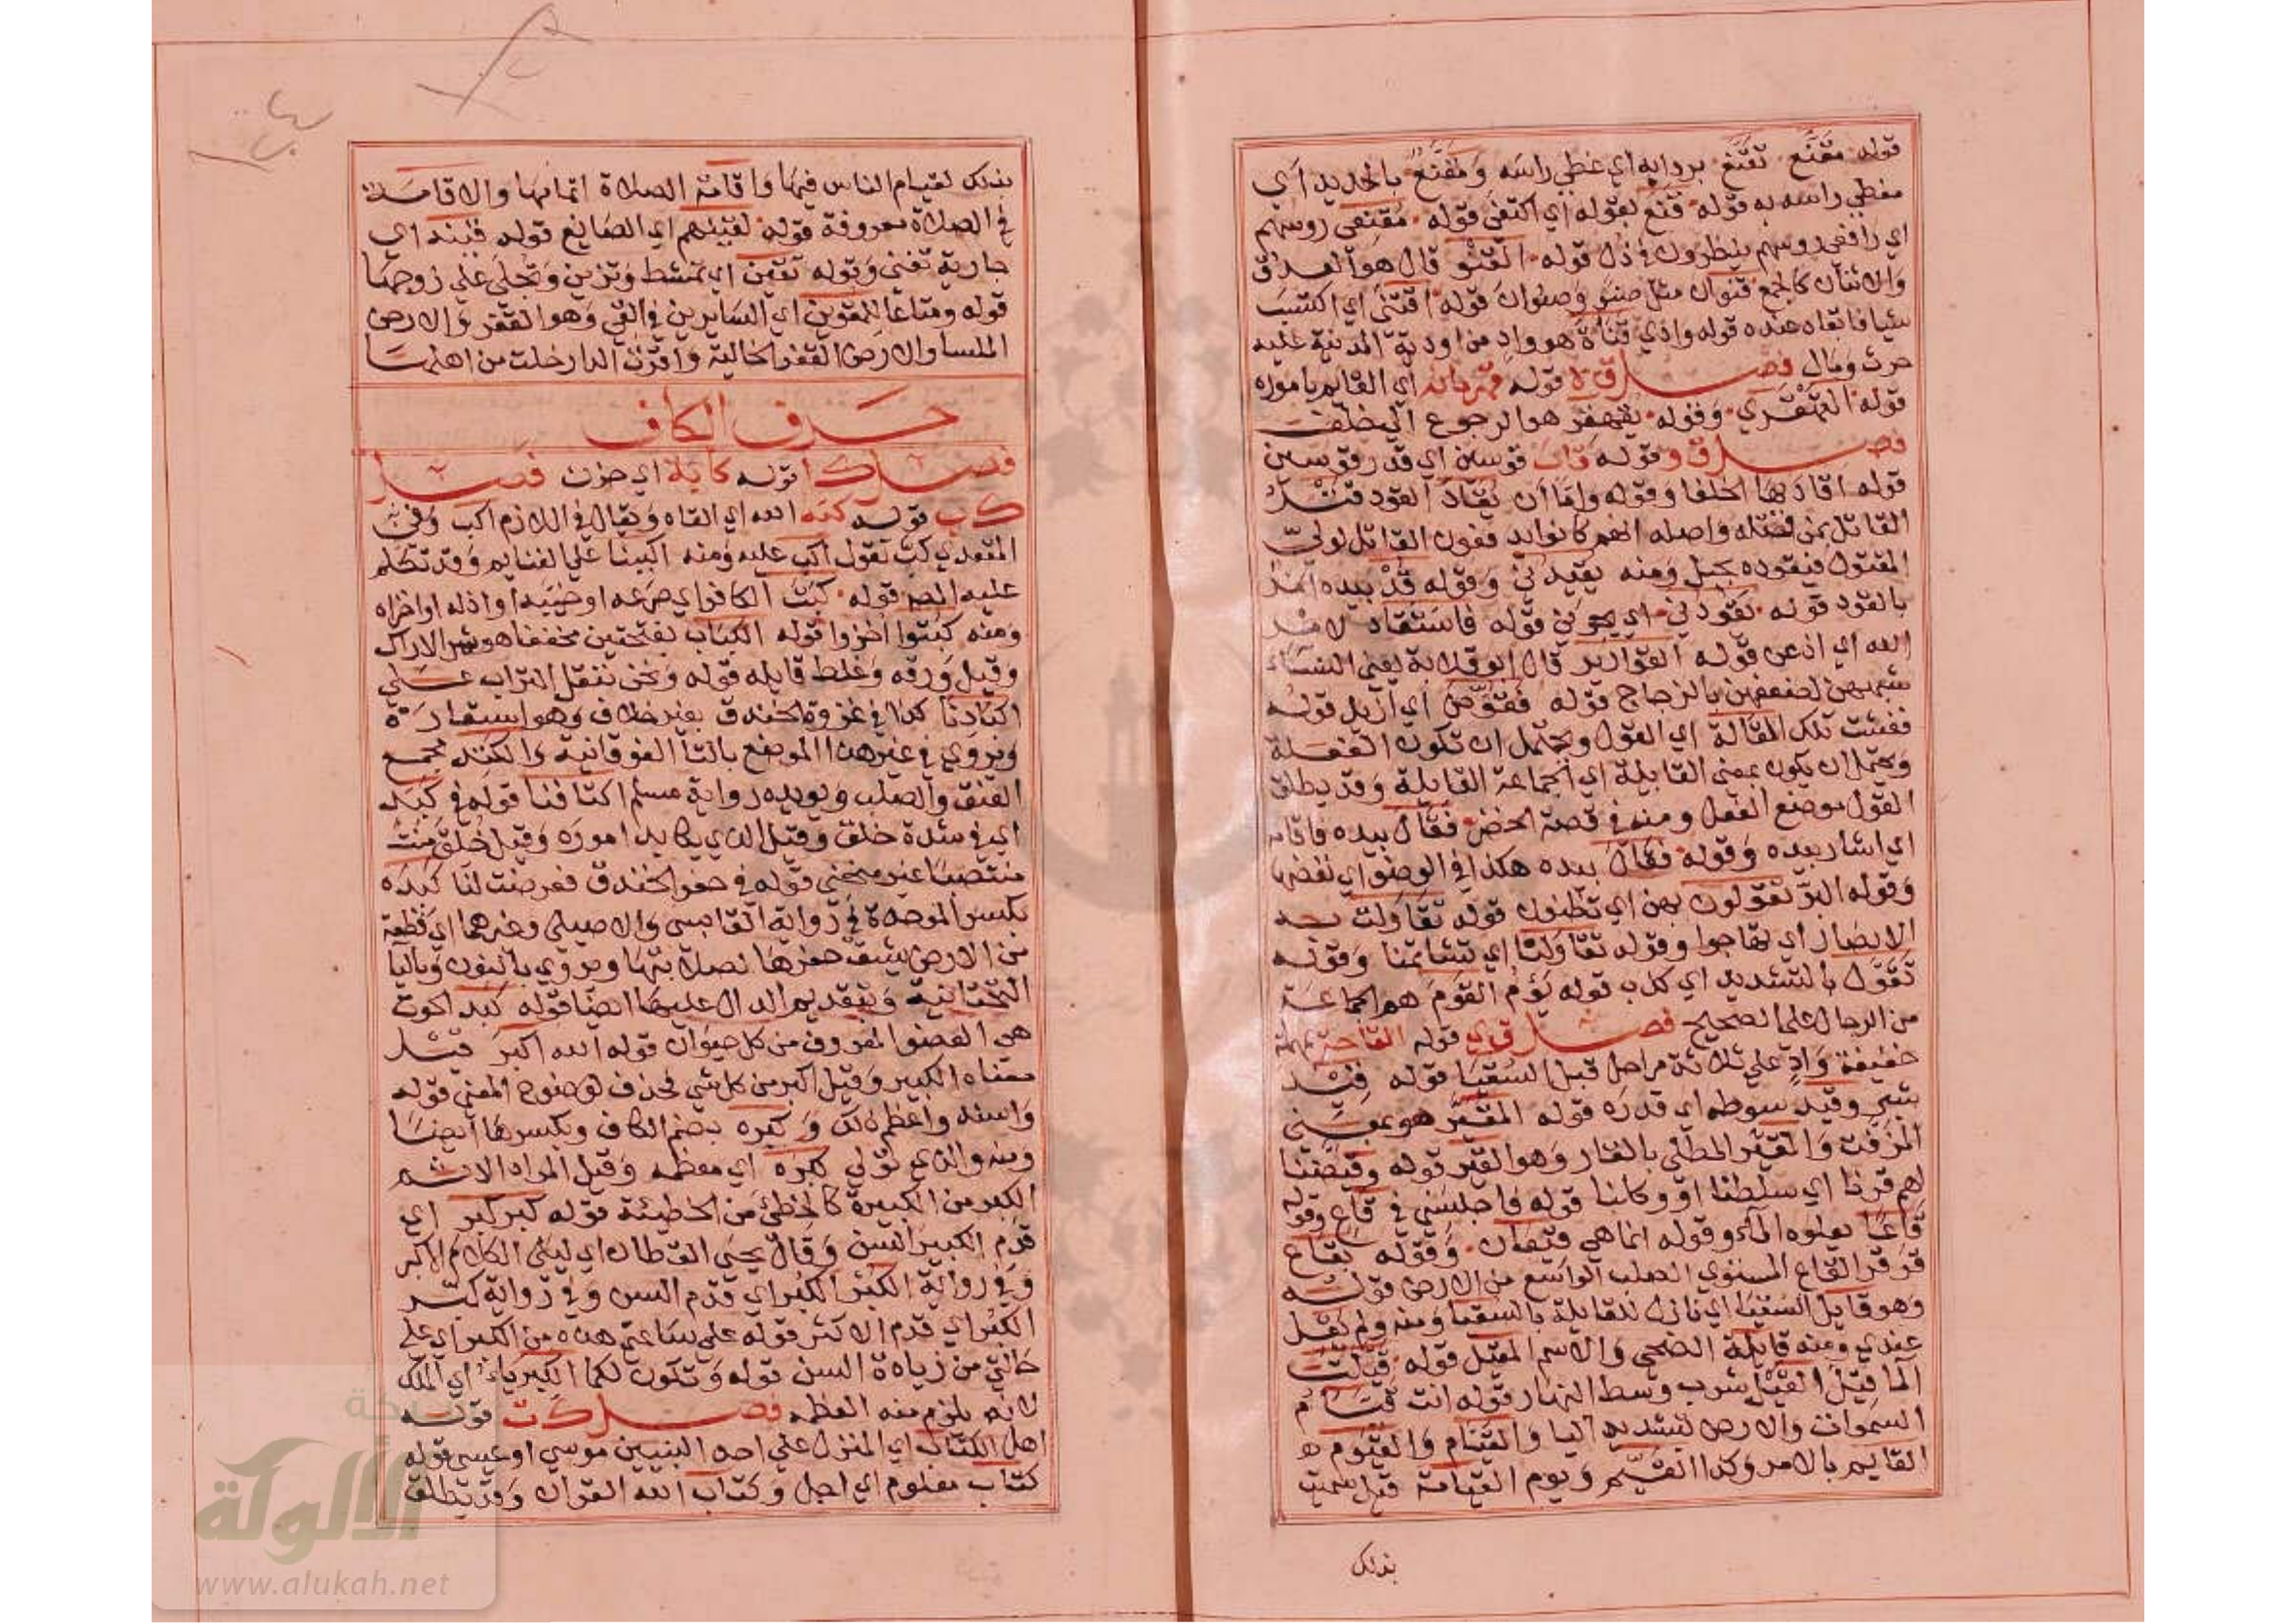 قوله مقنع تقنع بردايه اي غطي راسه ومقنع بالحديد اي
مغطي راسه به قوله قنع بقوله اي اكتفي قوله مقنعي روسهم
اي رافعي روسهم ينظرون في ذل قوله القنو قال هو العذق
والاثنان كالجمع قنوان مثل صنو وصنوان قوله اقتني اي اكتسب
شيا فابقاه عنده قوله وادي قناة هو واد من اودية المدينة عليه
حرث ومال فصل ق ه قوله قهرمانه اي القايم باموره
قوله القهقري وقوله يقهقر هو الرجوع الي خلف
فصل ق و قوله قاب قوسين اي قدر قوسين
قوله اقاد بها الخلفا وقوله واما ان يقاد القود قتل
القاتل بمن قتله واصله انهم كانوا يدفعون القاتل لولي
المقتول فيقوده بحبل ومنه يقيدني وقوله قد بيده امر
بالقود قوله تقودني اي قوله فاستقاد لامر
الله اي اذعن قوله القوارير قال ابو قلابة يعني النساء
شبههن لضعفهن بالزجاج قوله فقوض اي ازيل قوله
ففشت تلك المقالة اي القول ويحتمل ان تكون الفعلة
ويحتمل ان يكون بمعني القايلة اي الجماعة القايلة وقد يطلق
القول موضع الفعل ومنه في قصة الخضر فقال بيده فاقامه
اي اشار بيده وقوله فقال بيده هكذا في الوضو اي نفضها
وقوله البر تقولون بهن اي تظنون قوله تقاولت به
الانصار اي تهاجوا وقوله تقاولنا اي تشاتمنا وقوله
تقول بالتشديد اي كذب قوله يؤم القوم هم الجماعة
من الرجال علي الصحيح فصل ق ي قوله القاحة بمهملة
خفيفة واد علي ثلاثة مراحل قبل السقيا قوله قيد
شبر وقيد سوطه اي قدره قوله المقير هو بمعني
المزفت والمقير المطلي بالقار وهو القير قوله وقيضنا
لهم قرنا اي سلطنا او وكلنا قوله فاجلسني في قاع وقوله
قاعا يعلوه الماء وقوله انما هي قيعان وقوله بقاع
قرقر القاع المستوي الصلب الواسع من الارض قوله
وهو قايل السقيا اي نازل للقايلة بالسقيا ومنه ولم يقل
عندي ومنه قايلة الضحي والاسم المقيل قوله قيلت
الما قيل القيل شرب وسط النهار قوله انت قيام
السموات والارض بتشديد اليا والقيام والقيوم
القايم بالامر وكذا القيم ويوم القيامة قيل سميت
بذلك
بذلك لقيام الناس فيها واقامة الصلاة اتمامها والاقامة
في الصلاة معروفة قوله لقينهم اي الصانع قوله قينه اي
جارية تغني وقوله تقين اي تمشط وتزين وتجلي علي زوجها
قوله ومتاعا للمقوين اي السايرين في القي وهو القفر والارض
الملسا والارض القفر الخالية واقوت الدار خلت من اهلها
حرف الكاف
فصل ك ا قوله كابة اي حزن فصل
ك ب قوله كبه الله اي القاه ويقال في اللازم اكب وفي
المتعدي كب تقول اكب عليه ومنه اكببنا علي الغنايم وقد تكلم
عليه المص قوله كبت الكافر اي صرعه او خيبه او اذله او اخزاه
ومنه كبتوا اخزوا قوله الكباث بفتحتين مخففا هو ثمر الاراك
وقيل ورقه وغلط قايله قوله ونحن ننقل التراب علي
اكبادنا كذا في غزوة الخندق بغير خلاف وهو استعارة
ويروي في غير هذا الموضع بالتا الفوقانية والكتد مجمع
العنق والصلب ويويده رواية مسلم اكتافنا قوله في كبد
اي في شدة خلق وقيل الذي يكابد اموره وقيل خلق
منتصبا غير منحني قوله في حفر الخندق فعرضت لنا كبدة
بكسر الموحدة في رواية القابسي والاصيلي وغيرهما اي قطعة
من الارض يشق حفرها لصلابتها ويروي بالنون وباليا
التحتانية وبتقديم الدال عليها ايضا قوله كبد الحوت
هي العضو المعروف من كل حيوان قوله الله اكبر قيل
معناه الكبير وقيل اكبر من كل شي فحذف لوضوح المعني قوله
واسند واعظم ذلك وكبره بضم الكاف وبكسرها ايضا
ومنه والذي تولي كبره اي معظمه وقيل المراد الاثم
الكبر من الكبيرة كالخطئ من الخطيئة قوله كبر كبر اي
قدم الكبير السن وقال يحيي القطان اي ليلي الكلام الاكبر
وفي رواية الكبر الكبر اي قدم السن وفي رواية كبر
الكبر اي قدم الاكثر قوله علي ساعتي هذه من الكبر اي علي
حالتي من زيادة السن قوله وتكون لكما الكبرياء اي الملك
لانه يلزم منه العظمه فصل ك ت قوله
اهل الكتاب اي المنزل علي احد النبيين موسي او عيسي قوله
كتاب معلوم اي اجل وكتاب الله القران وقد يطلق
الألوكة
www.alukah.net